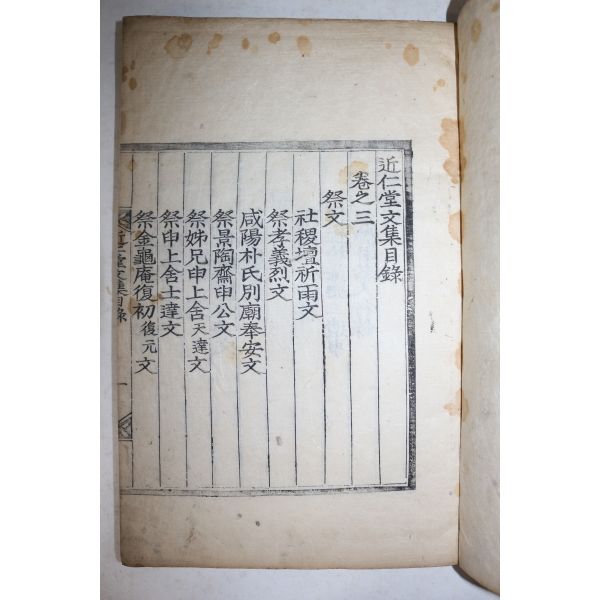 近仁堂文集目錄
卷之三
祭文
社稷壇祈雨文
祭孝義烈文
咸陽朴氏別廟奉安文
祭景陶齋申公文
祭姊兄申上舍天達文
祭申上舍士達文
祭金龜庵復初復元文
近仁堂文集目錄
一